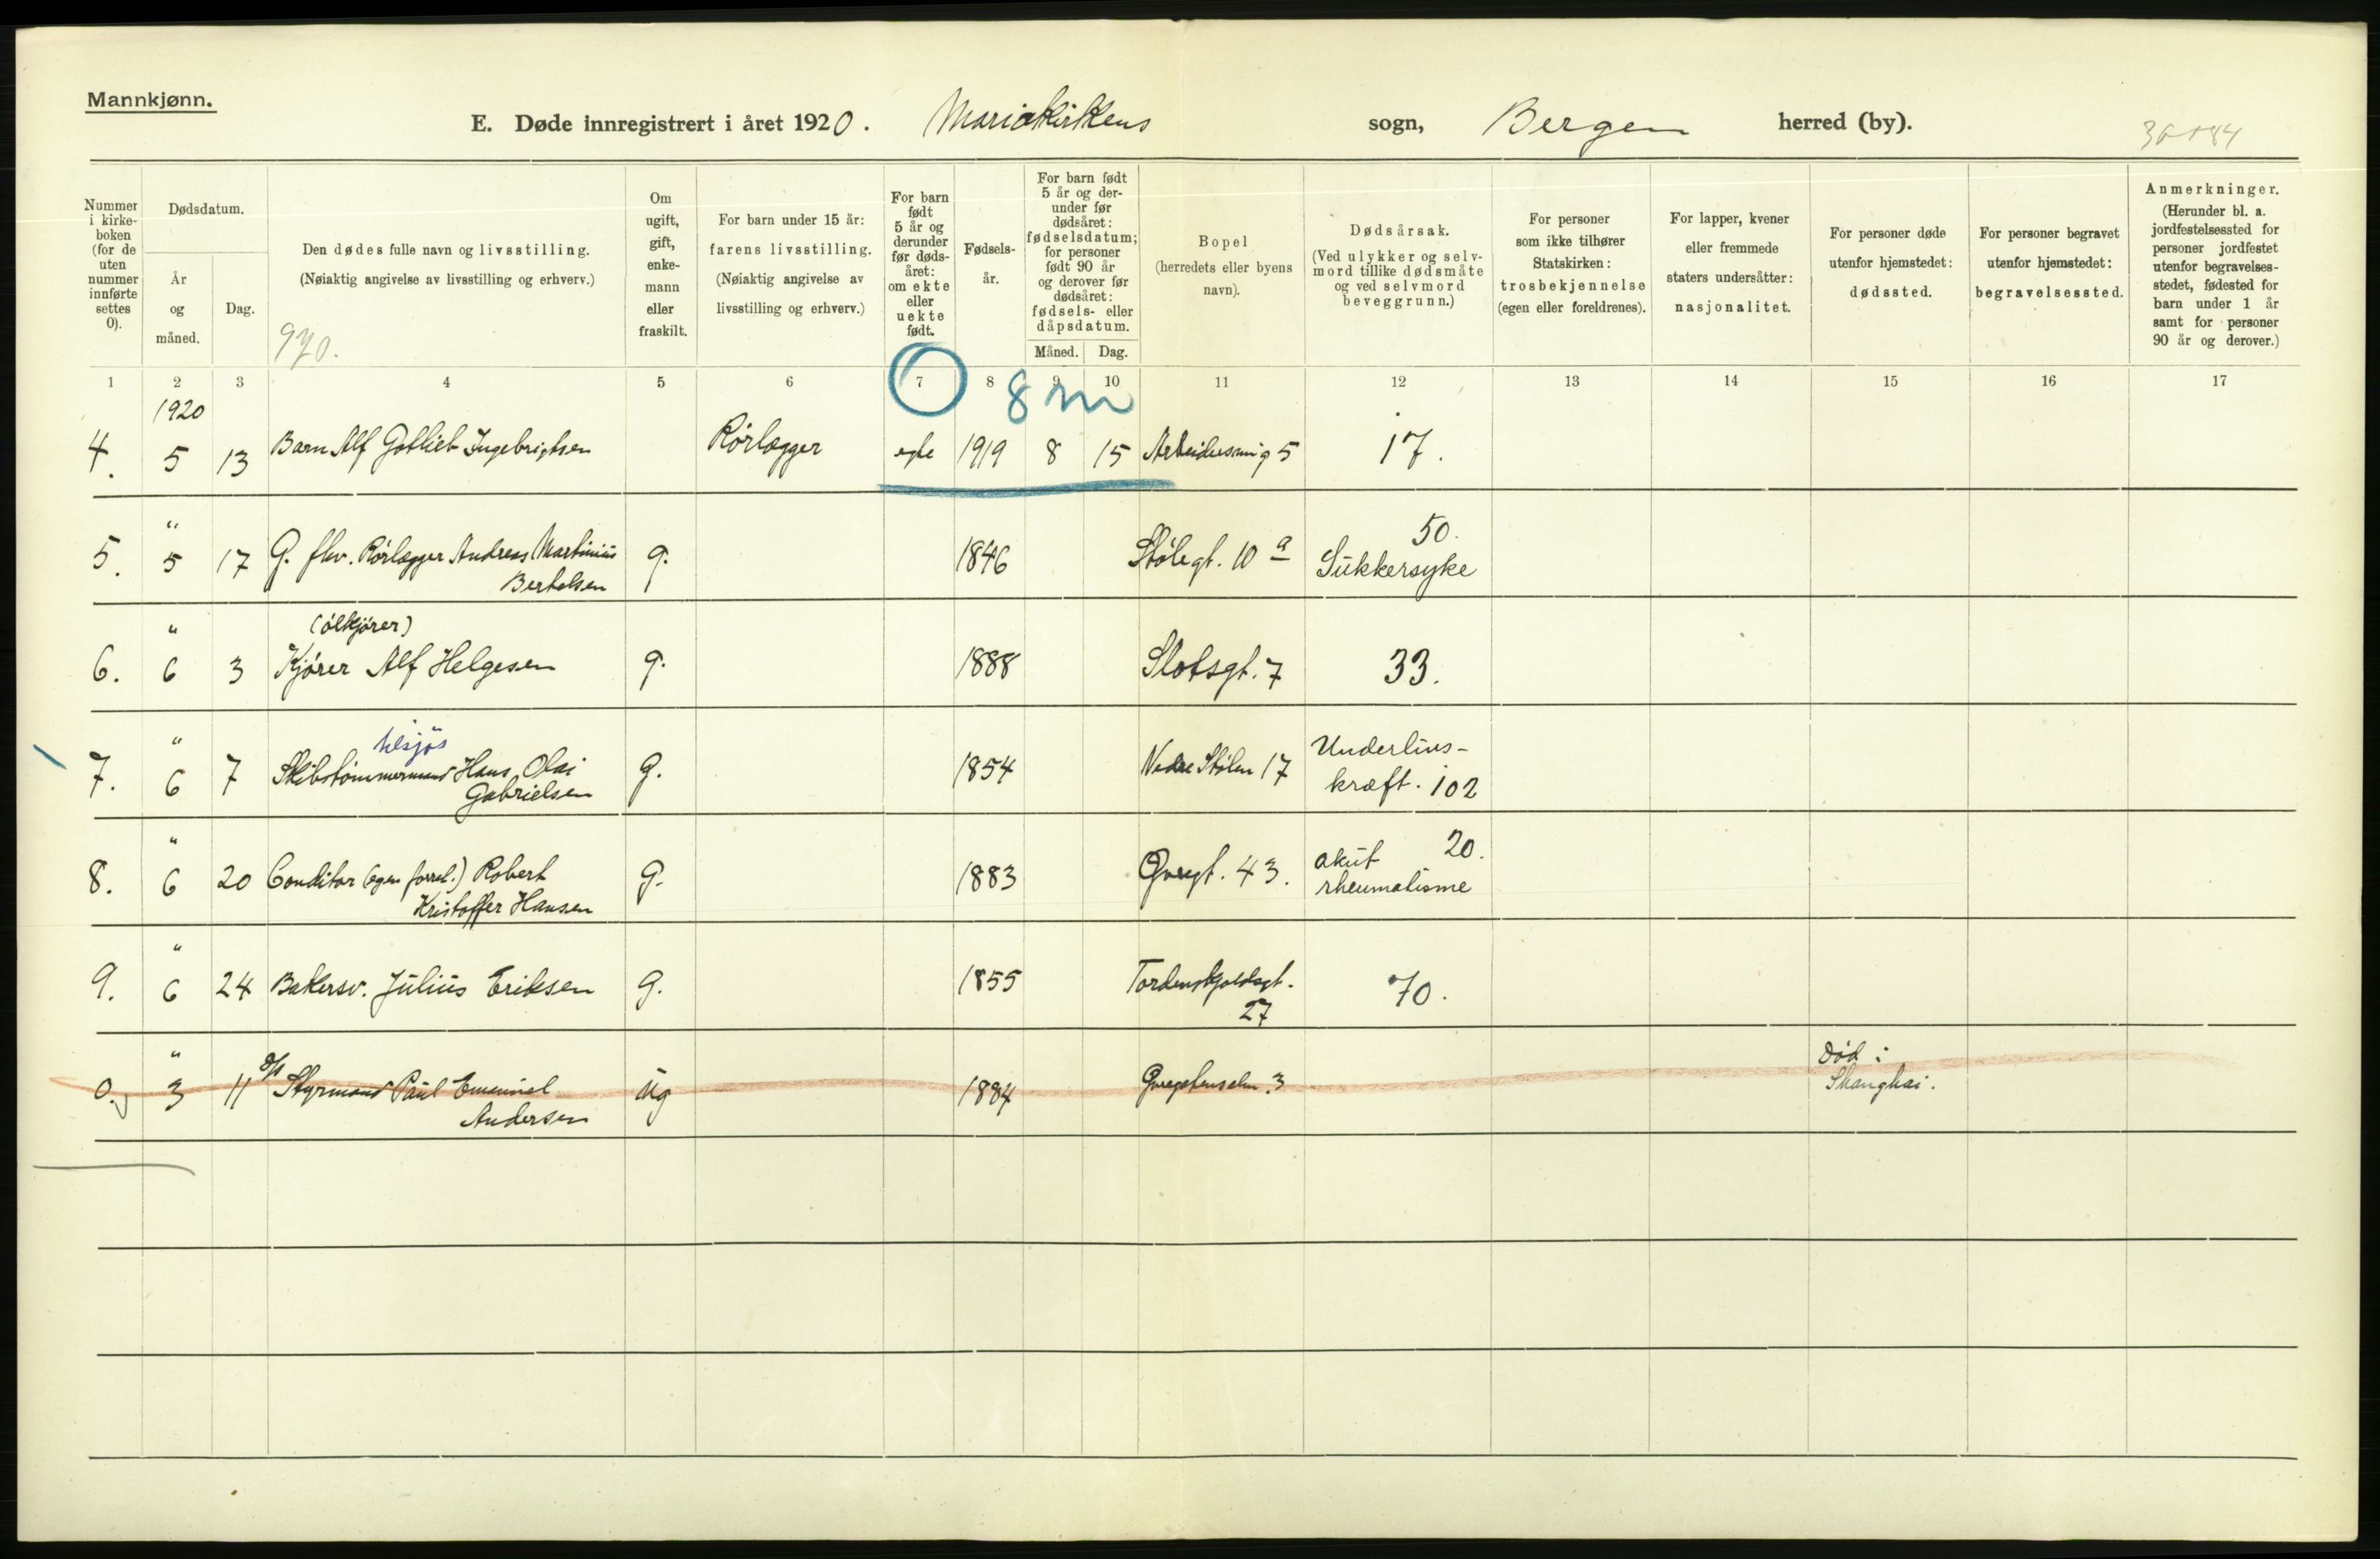 Mannkjønn.
E. Døde innregistrert i året 1920. Mariakirkens sogn, Bergen herred (by).
Nummer i kirke-boken (for de uten nummer innførte settes 0).
Dødsdatum.
År og måned.
Dag.
Den dødes fulle navn og livsstilling.
(Nøiaktig angivelse av livsstilling og erhverv.)
970.
Om ugift, gift, enke-mann eller fraskilt.
For barn under 15 år:
farens livsstilling.
(Nøiaktig angivelse av livsstilling og erhverv.)
For barn født 5 år og derunder før døds-året: om ekte eller uekte født.
Fødsels-år.
For barn født 5 år og der-under før dødsåret: fødselsdatum; for personer født 90 år og derover før dødsåret: fødsels- eller dåpsdatum.
Måned. Dag.
Bopel
(herredets eller byens navn).
Dødsårsak.
(Ved ulykker og selv-mord tillike dødsmåte og ved selvmord beveggrunn.)
For personer som ikke tilhører Statskirken: trosbekjennelse (egen eller foreldrenes).
For lapper, kvener eller fremmede staters undersåtter: nasjonalitet.
For personer døde utenfor hjemstedet: dødssted.
For personer begravet utenfor hjemstedet: begravelsessted.
Anmerkninger.
(Herunder bl. a. jordfestelsessted for personer jordfestet utenfor begravelses-stedet, fødested for barn under 1 år samt for personer 90 år og derover.)
1 2 3 4 5 6 7 8 9 10 11 12 13 14 15 16 17
8 m
1920
4. 5 13 Barn Alf Gotlieb Ingebrigtsen Rørlægger egte 1919 8 15 5 17.
" 50.
5. 5 17 G. fhv. Rørlægger Andreas Martinius g. 1846 Stølegt. 10 a Sukkersyke
Bertelsen
" (ølkjører)
6. 6 3 Kjører Alf Helgesen g. 1888 Slotsgt. 7 33.
" tilsjøs Underlivs-
7. 6 7 Skibstømmermand Hans Olai g. 1854 Nedre Stølen 17 kræft. 102
Gabrielsen
" akut 20.
8. 6 20 Conditor (egen forret.) Robert g. 1883 Øvregt. 43. rheumatisme
Kristoffer Hansen
"
9. 6 24 Bakersv. Julius Eriksen g. 1855 Tordenskjoldsgt. 70.
27
" død i
0. 3 11 Styrmand Paul Emanuel ug 1884 3 Shanghai.
Andersen